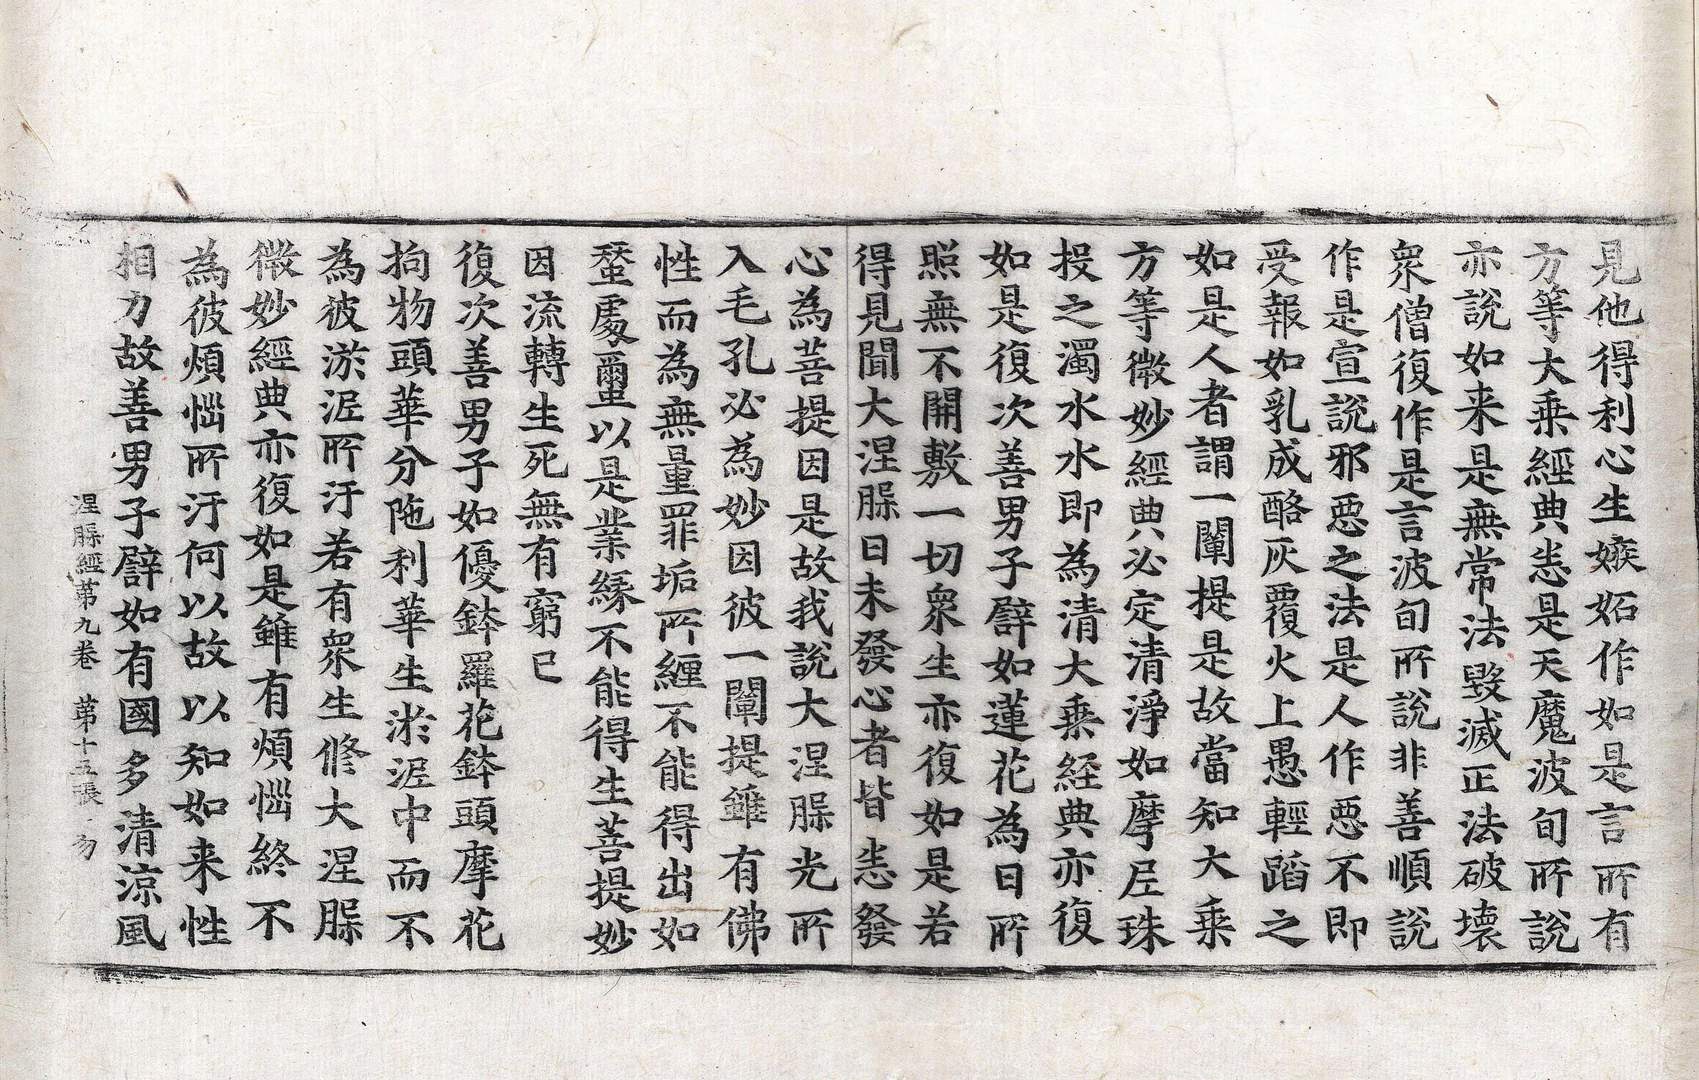 見他得利心生嫉妬作如是言所有
方等大乘經典悉是天魔波旬所說
亦說如来是無常法毀滅正法破壞
衆僧復作是言波旬所說非善順說
作是宣說邪惡之法是人作惡不即
受報如乳成酪灰覆火上愚輕蹈之
如是人者謂一闡提是故當知大乘
方等微妙經典必定清淨如摩尼珠
投之濁水水即為清大乘経典亦復
如是復次善男子譬如蓮花為日所
照無不開敷一切衆生亦復如是若
得見聞大涅槃日未發心者皆悉發
心為菩提因是故我說大涅槃光所
入毛孔必為妙因彼一闡提雖有佛
性而為無量罪垢所纏不能得出如
蚕處薗以是業緣不能得生菩提妙
因流轉生死無有窮已
復次善男子如優鉢羅花鉢頭摩花
拘物頭華分陁利華生淤泥中而不
為彼淤泥所汙若有衆生修大涅槃
微妙經典亦復如是雖有煩惱終不
為彼煩惱所汙何以故以知如来性
相力故善男子譬如有國多清涼風
涅槃經第九卷 第十五張 芴